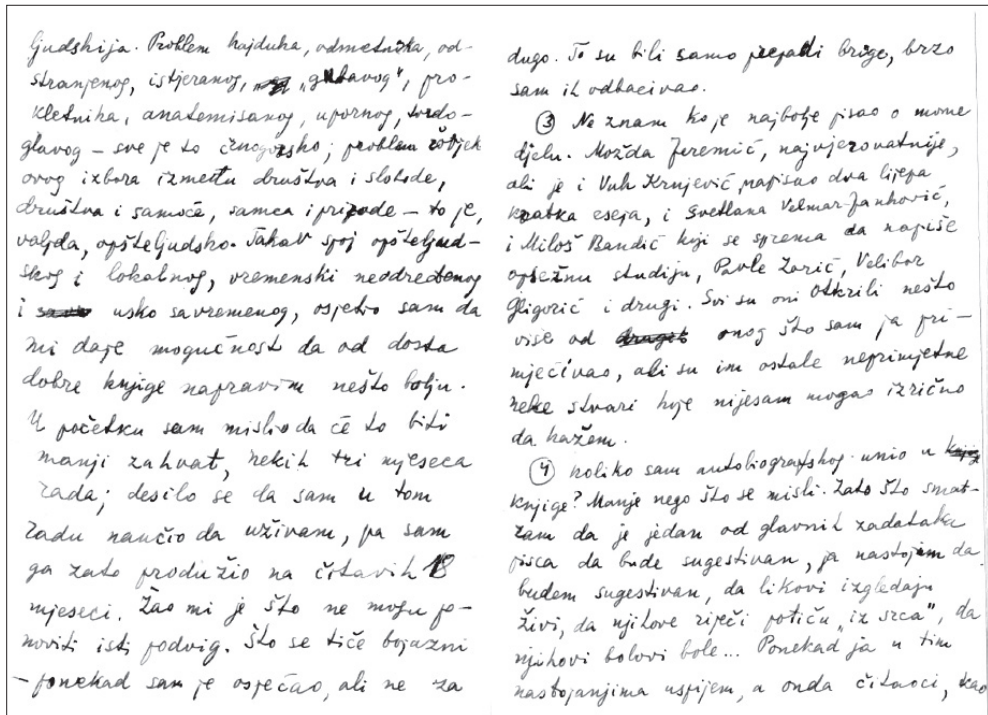 ljudskija. Problem hajduka, odmetnika, od-
stranjenog, istjeranog, „gubavog", pro-
kletnika, anatemisanog, upornog, tvrdo-
glavog – sve je to crnogorsko; problem čovjek
ovog izbora između društva i slobode,
društva i samoće, samca i prirode – to je,
valjda, opšteljudsko. Takav spoj opšteljud-
skog i lokalnog, vremenski neodređenog
i usko savremenog, osjetio sam da
mi daje mogućnost da od dosta
dobre knjige napravim nešto bolju.
U početku sam mislio da će to biti
manji zahvat, nekih tri mjeseca
rada; desilo se da sam u tom
radu naučio da uživam, pa sam
ga zato produžio na čitavih 18
mjeseci. Žao mi je što ne mogu po-
noviti isti podvig. Što se tiče bojazni
– ponekad sam je osjećao, ali ne za
dugo. To su bili samo brige, brzo
sam ih odbacivao.
③ Ne znam ko je najbolje pisao o mome
djelu. Možda Jeremić, najvjerovatnije,
ali je i Vuk Krnjević napisao dva lijepa
kratka eseja, i Svetlana Velmar-Janković,
i Miloš Bandić koji se sprema da napiše
opsežnu studiju, Pavle Zorić, Velibor
Gligorić i drugi. Svi su oni otkrili nešto
više od onog što sam ja pri-
mjećivao, ali su im ostale neprimjetne
neke stvari koje nijesam mogao izrično
da kažem.
④ Koliko sam autobiografskog unio u
knjige? Manje nego što se misli. Zato što smat-
ram da je jedan od glavnih zadataka
pisca da bude sugestivan, ja nastojim da
budem sugestivan, da likovi izgledaju
živi, da njihove riječi potiču „iz srca", da
njihovi bolovi bole... Ponekad ja u tim
nastojanjima uspijem, a onda čitaoci, kao